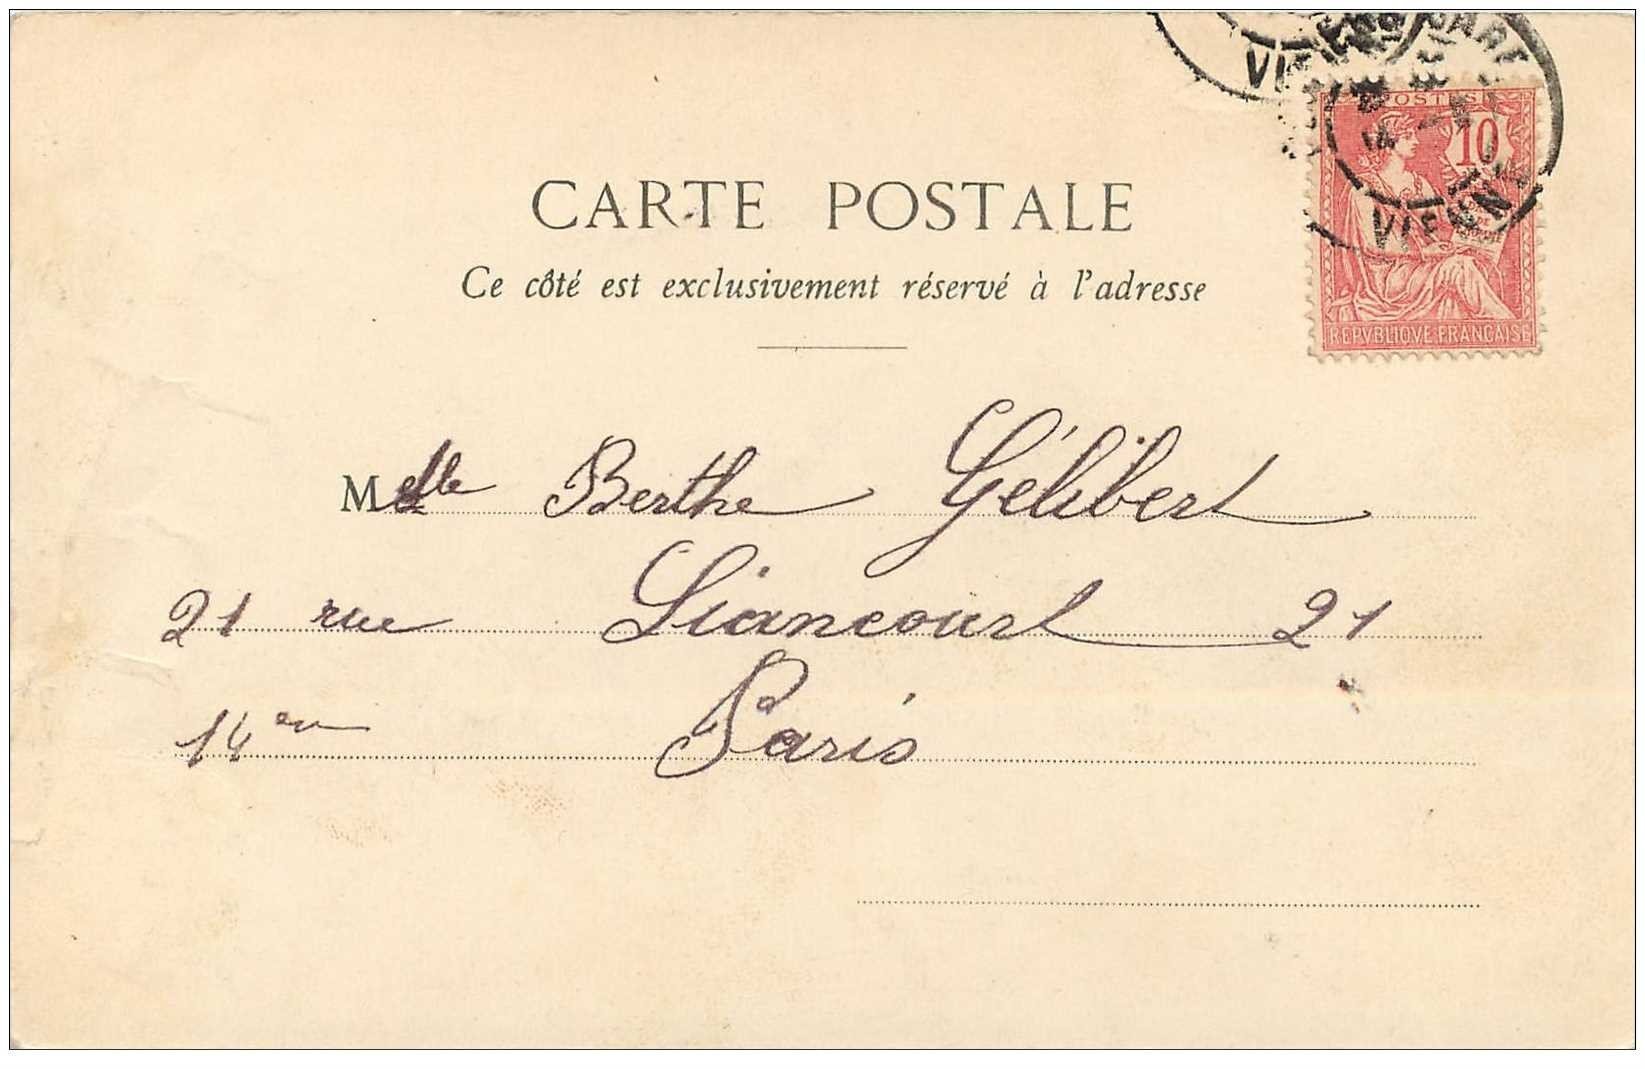 VIENNE
GARE
POSTES
10
VIENNE
REPVBLIQVE FRANÇAISE
CARTE POSTALE
Ce côté est exclusivement réservé à l'adresse
Melle Berthe Gélibert
21 rue Liancourt 21
14em Paris